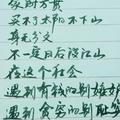 买不了太阳不下山
尊无分文
不一定日后没江山
在这个社会
遇到有钱的别嫉妒
遇到贫穷的别耻笑